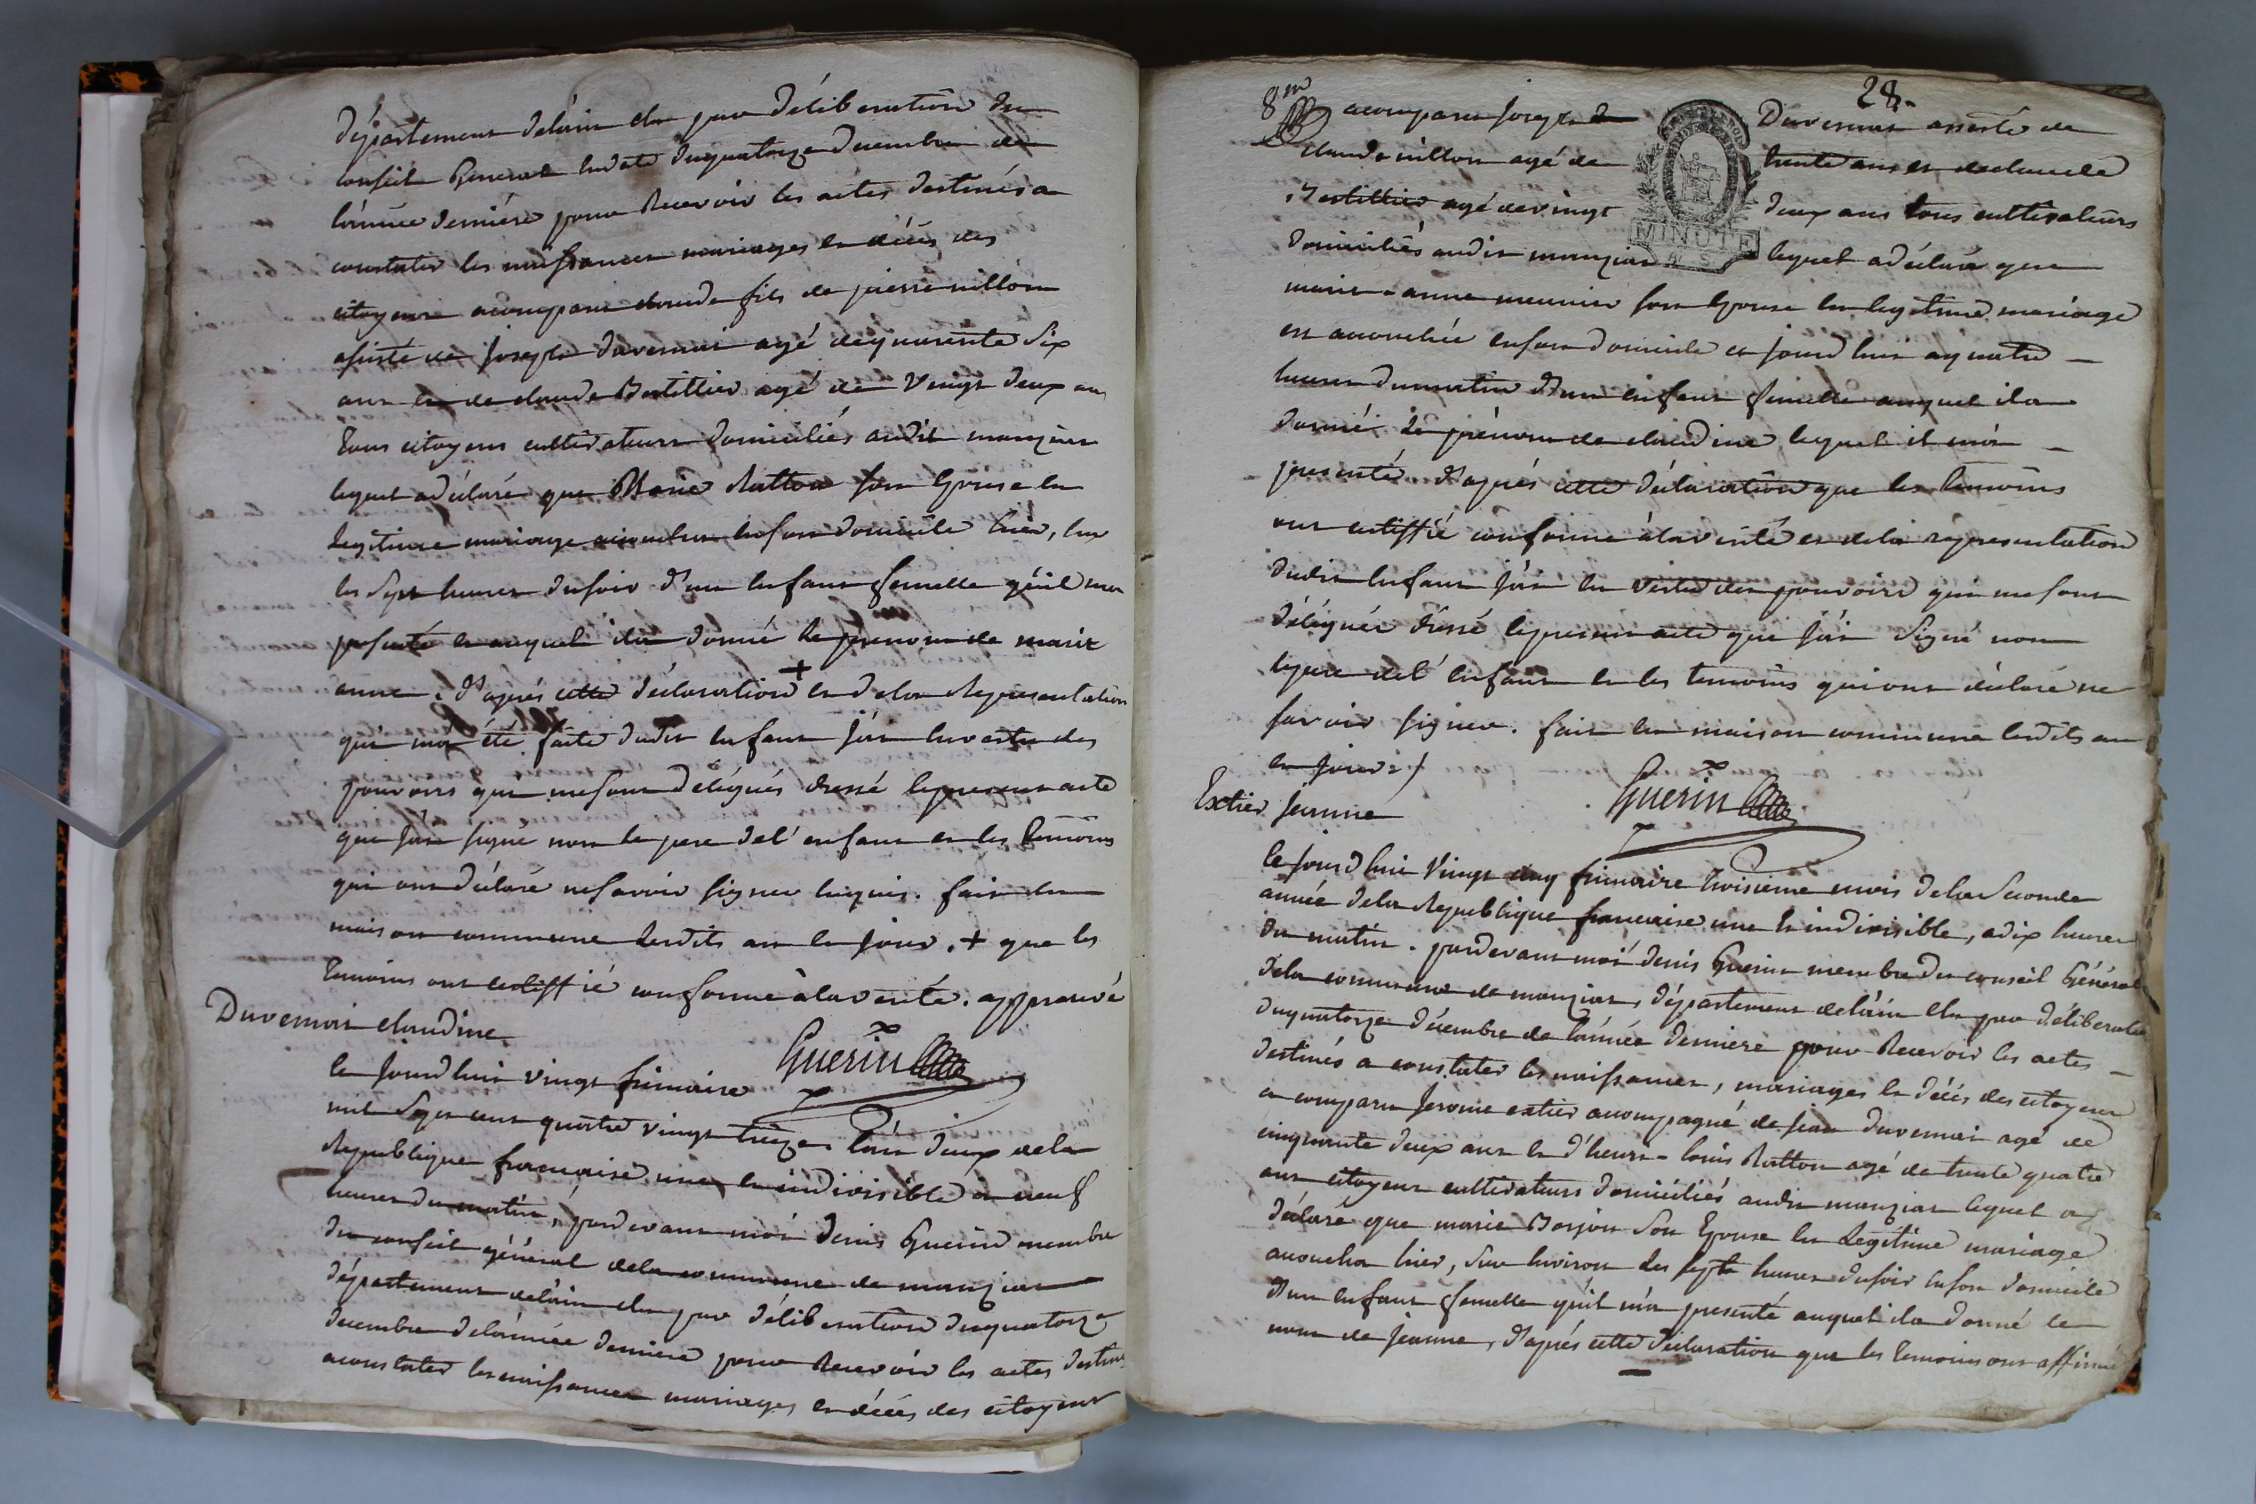 département delain elu par délibération du
conseil General endate duquatorze decembre de
l'année derniére pour Recevoir les actes destinés a
constater les naissances mariages en décés des
citoyens acomparu claude fils de pierre nillon
assisté de joseph duvernai agé dequarente Six
ans en de claude Bertillier agé de Vingt deux ans
tous citoyens cultivateurs domiciliés audit manziat
lequel adéclaré que Marie Ratton son Epouse en
legitime mariage accoucha en son domicile hier, sur
les Sept heures dusoir d'un Enfant femelle qu'il ma
presenté en auquel il a donné le prenom de marie
anne. d'aprés cette déclaration + en dela Representation
qui m'a été faite dudit Enfant j'ai En vertu des
pouvoirs qui mesont délégués dressé leprésent acte
que j'ai signé non le pere del'enfant en les temoins
qui ont déclaré nesavoir signer enquis. fait en
maison commune lesdits an en jour. + que les
temoins ont certiffié conforme àlaverité. approuvé
Duvernai claudine
Guerin
le jourd'hui vingt frimaire
mil Sept cent quatre vingt treize l'an deux dela
Republique francaise une en indivisible a neuf
heures du matin, pardevant moi denis Guerin membre
du conseil général dela commune de manziat
département delain elu par délibération duquatorze
decembre delannée derniere pour Recevoir les actes destinés
aconstater les naissances mariages en décés des citoyens
28.
8.m
acomparu joseph Duvernai assisté de
claude nillon agé de trente ans en declaude
Bertillier agé devingt deux ans tous cultivateurs
domiciliés audit manziat lequel adéclaré que
marie-anne meunier son Epouse en legitime mariage
est accouchée enson domicile ce jourd'hui aquatre
heures dumatin d'un enfant femelle auquel ila
donné le prénom de claudine, lequel il m'a
presenté. d'aprés cette déclaration que les temoins
ont certiffié conforme àlaverité en dela representation
dudit Enfant j'ai en vertu des pouvoirs qui me sont
délégués dressé leprésent acte que j'ai Signé non
lepere del'enfant en les temoins quiont déclaré ne
savoir signer. fait en maison commune lesdits an
en jour
Guerin
Extier jeanne
le jourd'hui Vingt cinq frimaire troisième mois dela Seconde
année dela Republique francaise une en indivisible, adix heures
du matin. pardevant moi denis Guerin membre du conseil Général
dela commune de manziat, département delain elu par déliberation
duquatorze décembre de l'année derniere pour Recevoir les actes
destinés a constater les naissances, mariages en décés des citoyens
a comparu jerome extier accompagné de jean duvernai agé de
cinquante deux ans en d'henri-louis Ratton agé de trente quatre
ans citoyens cultivateurs domiciliés audit manziat lequel a
déclaré que marie Borjon Son Epouse en Legitime mariage
accoucha hier, sur Environ les sept heures dusoir enson domicile
d'un enfant femelle qu'il m'a presenté auquel ila donné le
nom de jeanne, d'aprés cette déclaration que les temoins ont affirmé
MINUTE